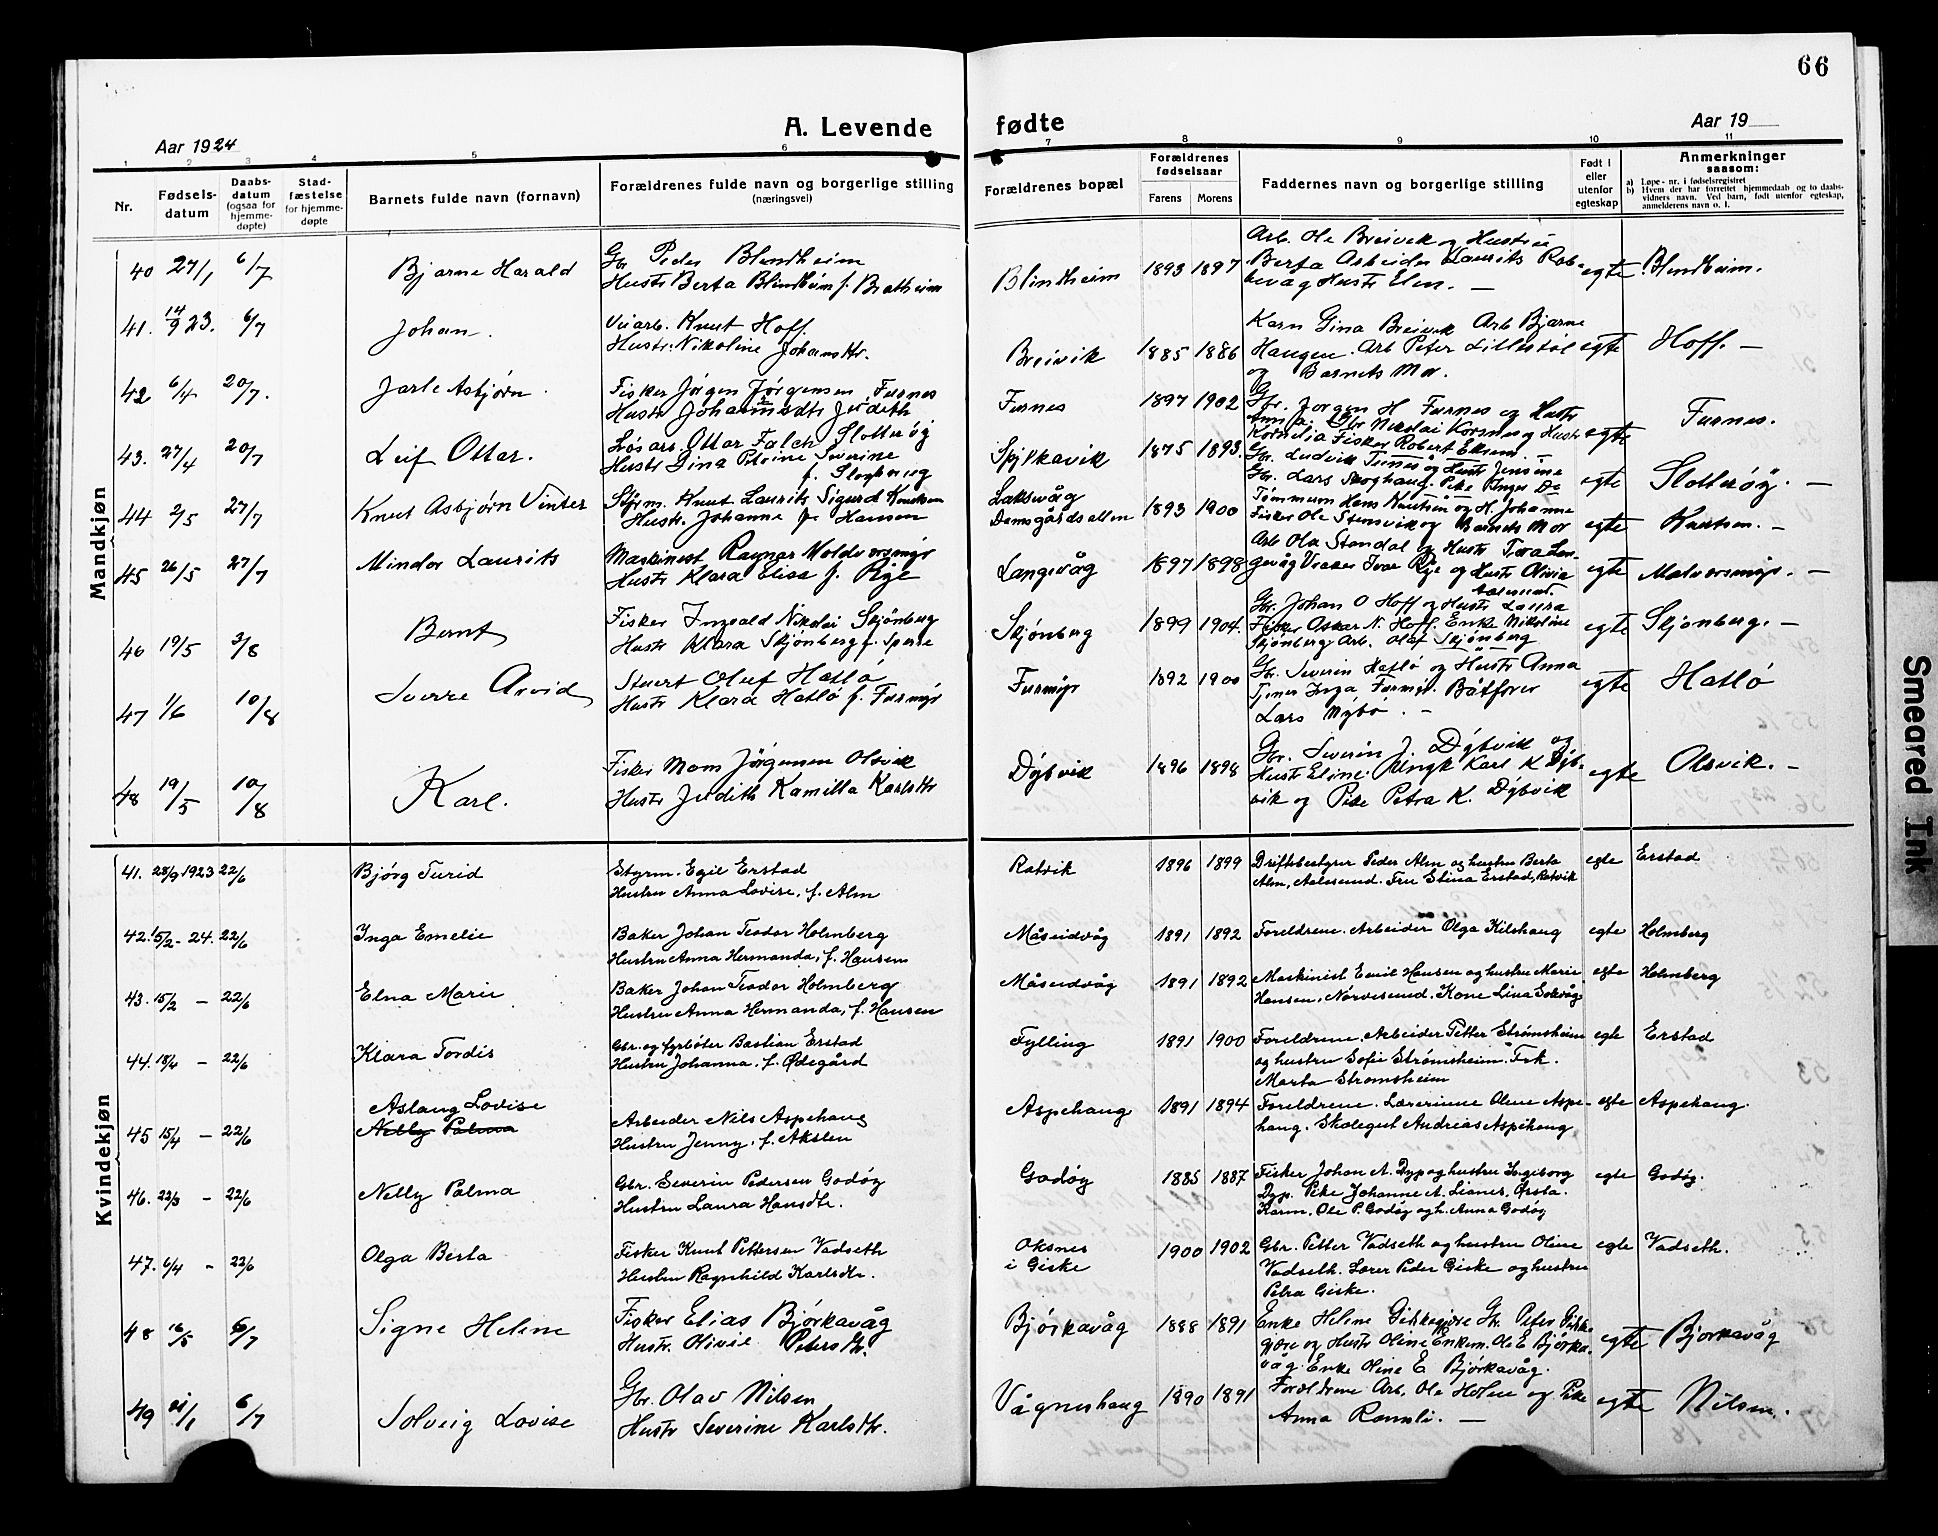 66
A. Levende fødte
Aar 1924
Aar 19
1 2 3 4 5 6 7 8 9 10 11
Nr.
Fødsels-
datum
Daabs-
datum
(ogsaa for
hjemme-
døpte)
Stad-
fæstelse
for hjemme-
døpte
Barnets fulde navn (fornavn)
Forældrenes fulde navn og borgerlige stilling
(næringsvei)
Forældrenes bopæl
Forældrenes
fødselsaar
Farens
Morens
Faddernes navn og borgerlige stilling
Født i
eller
utenfor
egteskap
Anmerkninger
saasom:
a) Løpe-nr. i fødselsregistret
b) Hvem der har forrettet hjemmedaab og to daabs-
vidners navn. Ved barn, født utenfor egteskap,
anmelderens navn o. l.
Mandkjøn
40 27/1 6/7 Bjarne Harald
Gbr Peder Blindheim
Hustr Berta Blindheim f. Bratheim
Blindheim 1893 1897
Arb. Ole Breivik og Hustru
Berta Arbeider Laurits Rob-
bevåg Hustr Elen. —
egte Blindheim.
41. 14/9 23. 6/7 Johan.
Veiarb. Knut Hoff.
Hustr. Nikoline Johansdtr.
Breivik 1885 1886
Karn Gina Breivik Arb Bjarne
Haugen. Arb Peter Lillestøl
og Barnets Mor.
egte Hoff. —
42 6/4 20/7. Jarle Asbjørn.
Fisker Jørgen Jørgensen Furnes
Hustr Johannesdtr Judith
Furnes 1897 1902
Gbr. Jørgen H Furnes og Hustr
Gbr Nikolai Korsnes og Hustr
Kornelia Fisker Robert
egte Furnes.
43. 27/4 20/7 Leif Ottar.
Løsarb. Ottar Falch Slotterøy
Hustr Gina Petrine Severine
Spjelkavik 1875 1893.
Gbr. Ludvik og Hustr Jensine
Gbr. Lars Skoghaug. Pike
egte Slotterøy. —
44 2/5 27/7 Knut Asbjørn Vinter
Styrm. Knut Laurits Sigurd Knutsen
Hustr. Johanne f. Hansen
Laksevåg
Damsgårdsallen 1893 1900
Tømmerm Hans Knutsen og H. Johanne
Fisker Ole Stensvik og Barnets Mor
egte Knutsen. —
45 26/5 27/7 Mindor Laurits
Maskinest Ragnar Moldvorsmyr
Hustr Klara Elise f. Rye
Langevåg 1897 1898
Arb Ola Standal og Hustr Tora Lan-
gevåg Visker Ivar Rye og Hustr Olivia
Aalesund.
egte Molvorsmyr. —
46 19/5 3/8 Bernt
Fisker Ingvald Nikolai Skjønberg
Hustr Klara Skjønberg f. Sperre
Skjønberg 1899 1904.
Gbr. Johan O Hoff og Hustr Laura
Fisker Oskar N. Hoff. Enke Nikoline
Skjønberg Arb. Olaf Skjønberg
egte Skjønberg. —
47 1/6 10/8 Sverre Arvid
Stuert Oluf Hatlø
Hustr Klara Hatlø f. Furmyr
Furmyr 1892 1900
Gbr. Severin Hatlø og Hustr Anna
Tjener Inga Furmyr. Båtfører
Lars Mybø. —
egte Hatlø
48 19/5 10/8 Karl.
Fisker Mons Jörgensen Olsvik
Hustr Judith Kamilla Karlsdtr
Dybvik 1896 1898
Gbr. Severin J. Dybvik og
Hustr Eline. Ungk Karl K Dyb-
vik og Pike Petra K. Dybvik
egte Olsvik. —
Kvindekjøn
41. 28/9 1923 22/6 Bjørg Turid
Styrm. Egil Erstad
Hustru Anna Lovise, f. Alm
Ratvik 1896 1899
Driftsbestyrer Peder Alm og hustru Berta
Alm, Aalesund. Fru Stina Erstad, Ratvik
egte Erstad
42. 15/2 - 24. 22/6 Inga Emelie
Baker Johan Teodor Holmberg
Hustru Anna Hermanda, f. Hansen
Måseidvåg 1891 1892
Foreldrene. Arbeider Olga Kilshaug
egte Holmberg
43. 15/2 — 22/6 Elna Marie
Baker Johan Teodor Holmberg
Hustru Anna Hermanda, f. Hansen
Måseidvåg 1891 1892
Maskinist Emil Hansen og hustru Marie
Hansen, Nørvesund. Kone Lina Solvåg
egte Holmberg
44. 18/4 — 22/6 Klara Tordis
Gbr. og fyrbøter Bastian Erstad
Hustru Johanna, f. Ødegård
Fylling 1891 1900
Foreldrene. Arbeider Petter Strømsheim
og hustru Sofie Strømsheim. Frk.
Marta Strømsheim
egte Erstad
45 15/4 — 22/6 Aslaug Lovise
Nelly Palma
Arbeider Nils Aspehaug
Hustru Jenny, f. Akslen
Aspehaug 1891 1894
Foreldrene. Lærerinne Oline Aspe-
haug. Skolegut Andreas Aspehaug
egte Aspehaug.
46. 22/3 — 22/6 Nelly Palma
Gbr. Severin Pedersen Godøy
Hustru Laura Hansdtr.
Godøy 1885 1887
Fisker Johan A. Dyp og hustru Ingeborg
Dyp. Pike Johanne A. Lianes, Ørsta.
Karm. Ole P. Godøy og h. Anna Godøy
egte Godøy.
47. 6/4 — 22/6 Olga Berta
Fisker Knut Pettersen Vadseth
Hustru Ragnhild Karlsdtr.
Oksnes
i Giske 1900 1902
Gbr. Petter Vadseth og hustru Oline
Vadseth. Lærer Peder Giske og hustru
Petra Giske.
egte Vadseth.
48 16/5 6/7 Signe Helene
Fisker Elias Bjørkavåg
Hustr. Olivie Petersdtr.
Bjørkavåg 1888 1891
Enke Helene Giskegjøre Gbr. Peter Giske-
gjøre og Hustr Oline Enkem. Ole E Bjørka-
våg. Enke Oline E Bjørkavåg.
egte Bjørkavåg
49 21/1 6/7 Solveig Lovise
Gbr. Olav Nilsen
Hustr Severine Karlsdtr.
Vågneshaug 1890 1891
Foreldrene Arb. Ole Holen og Pike
Anna Romsli. —
egte Nilsen.
Smeared Ink